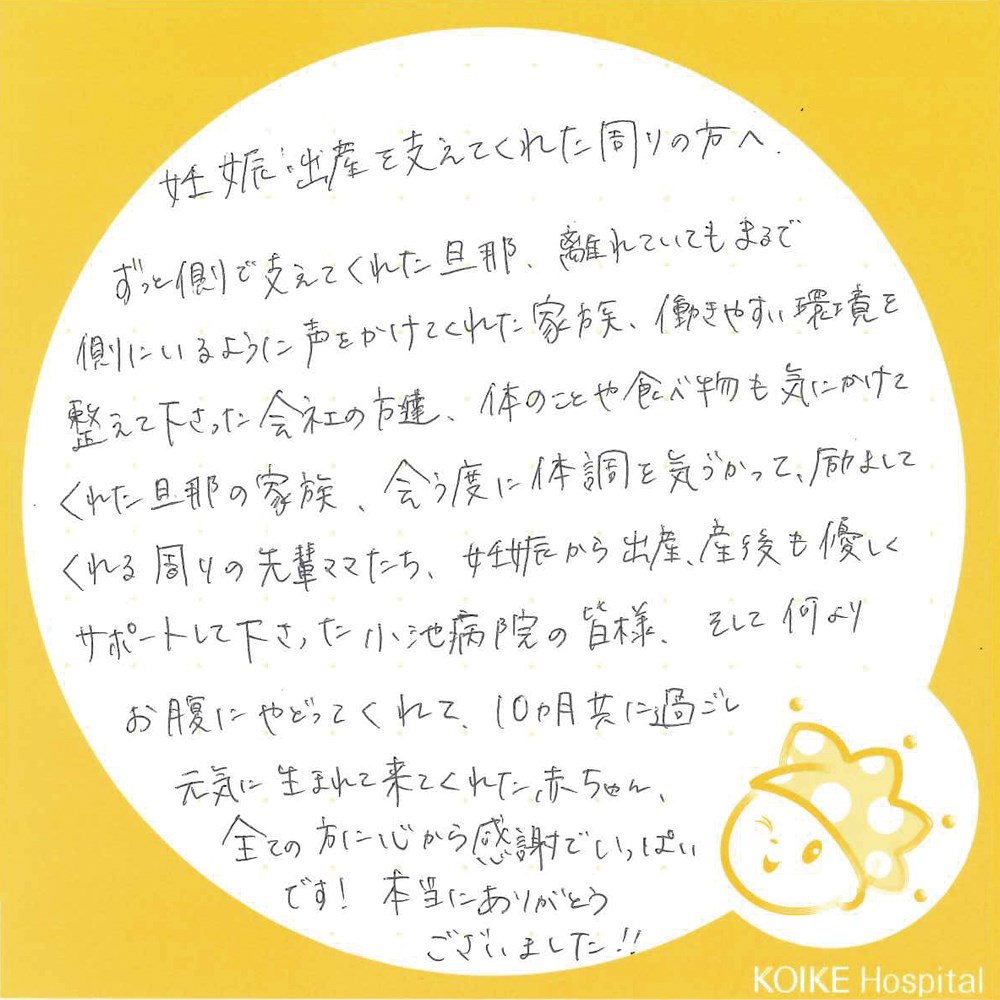 妊娠・出産を支えてくれた周りの方へ.
ずっと側で支えてくれた旦那、離れていてもまるで
側にいるように声をかけてくれた家族、働きやすい環境を
整えて下さった会社の方達、体のことや食べ物も気にかけて
くれた旦那の家族、会う度に体調を気づかって、励まして
くれる周りの先輩ママたち、妊娠から出産、産後も優しく
サポートして下さった小池病院の皆様、そして何より
お腹にやどってくれて、10ヵ月共に過ごし
元気に生まれて来てくれた赤ちゃん、
全ての方に心から感謝でいっぱい
です! 本当にありがとう
ございました!!
KOIKE Hospital